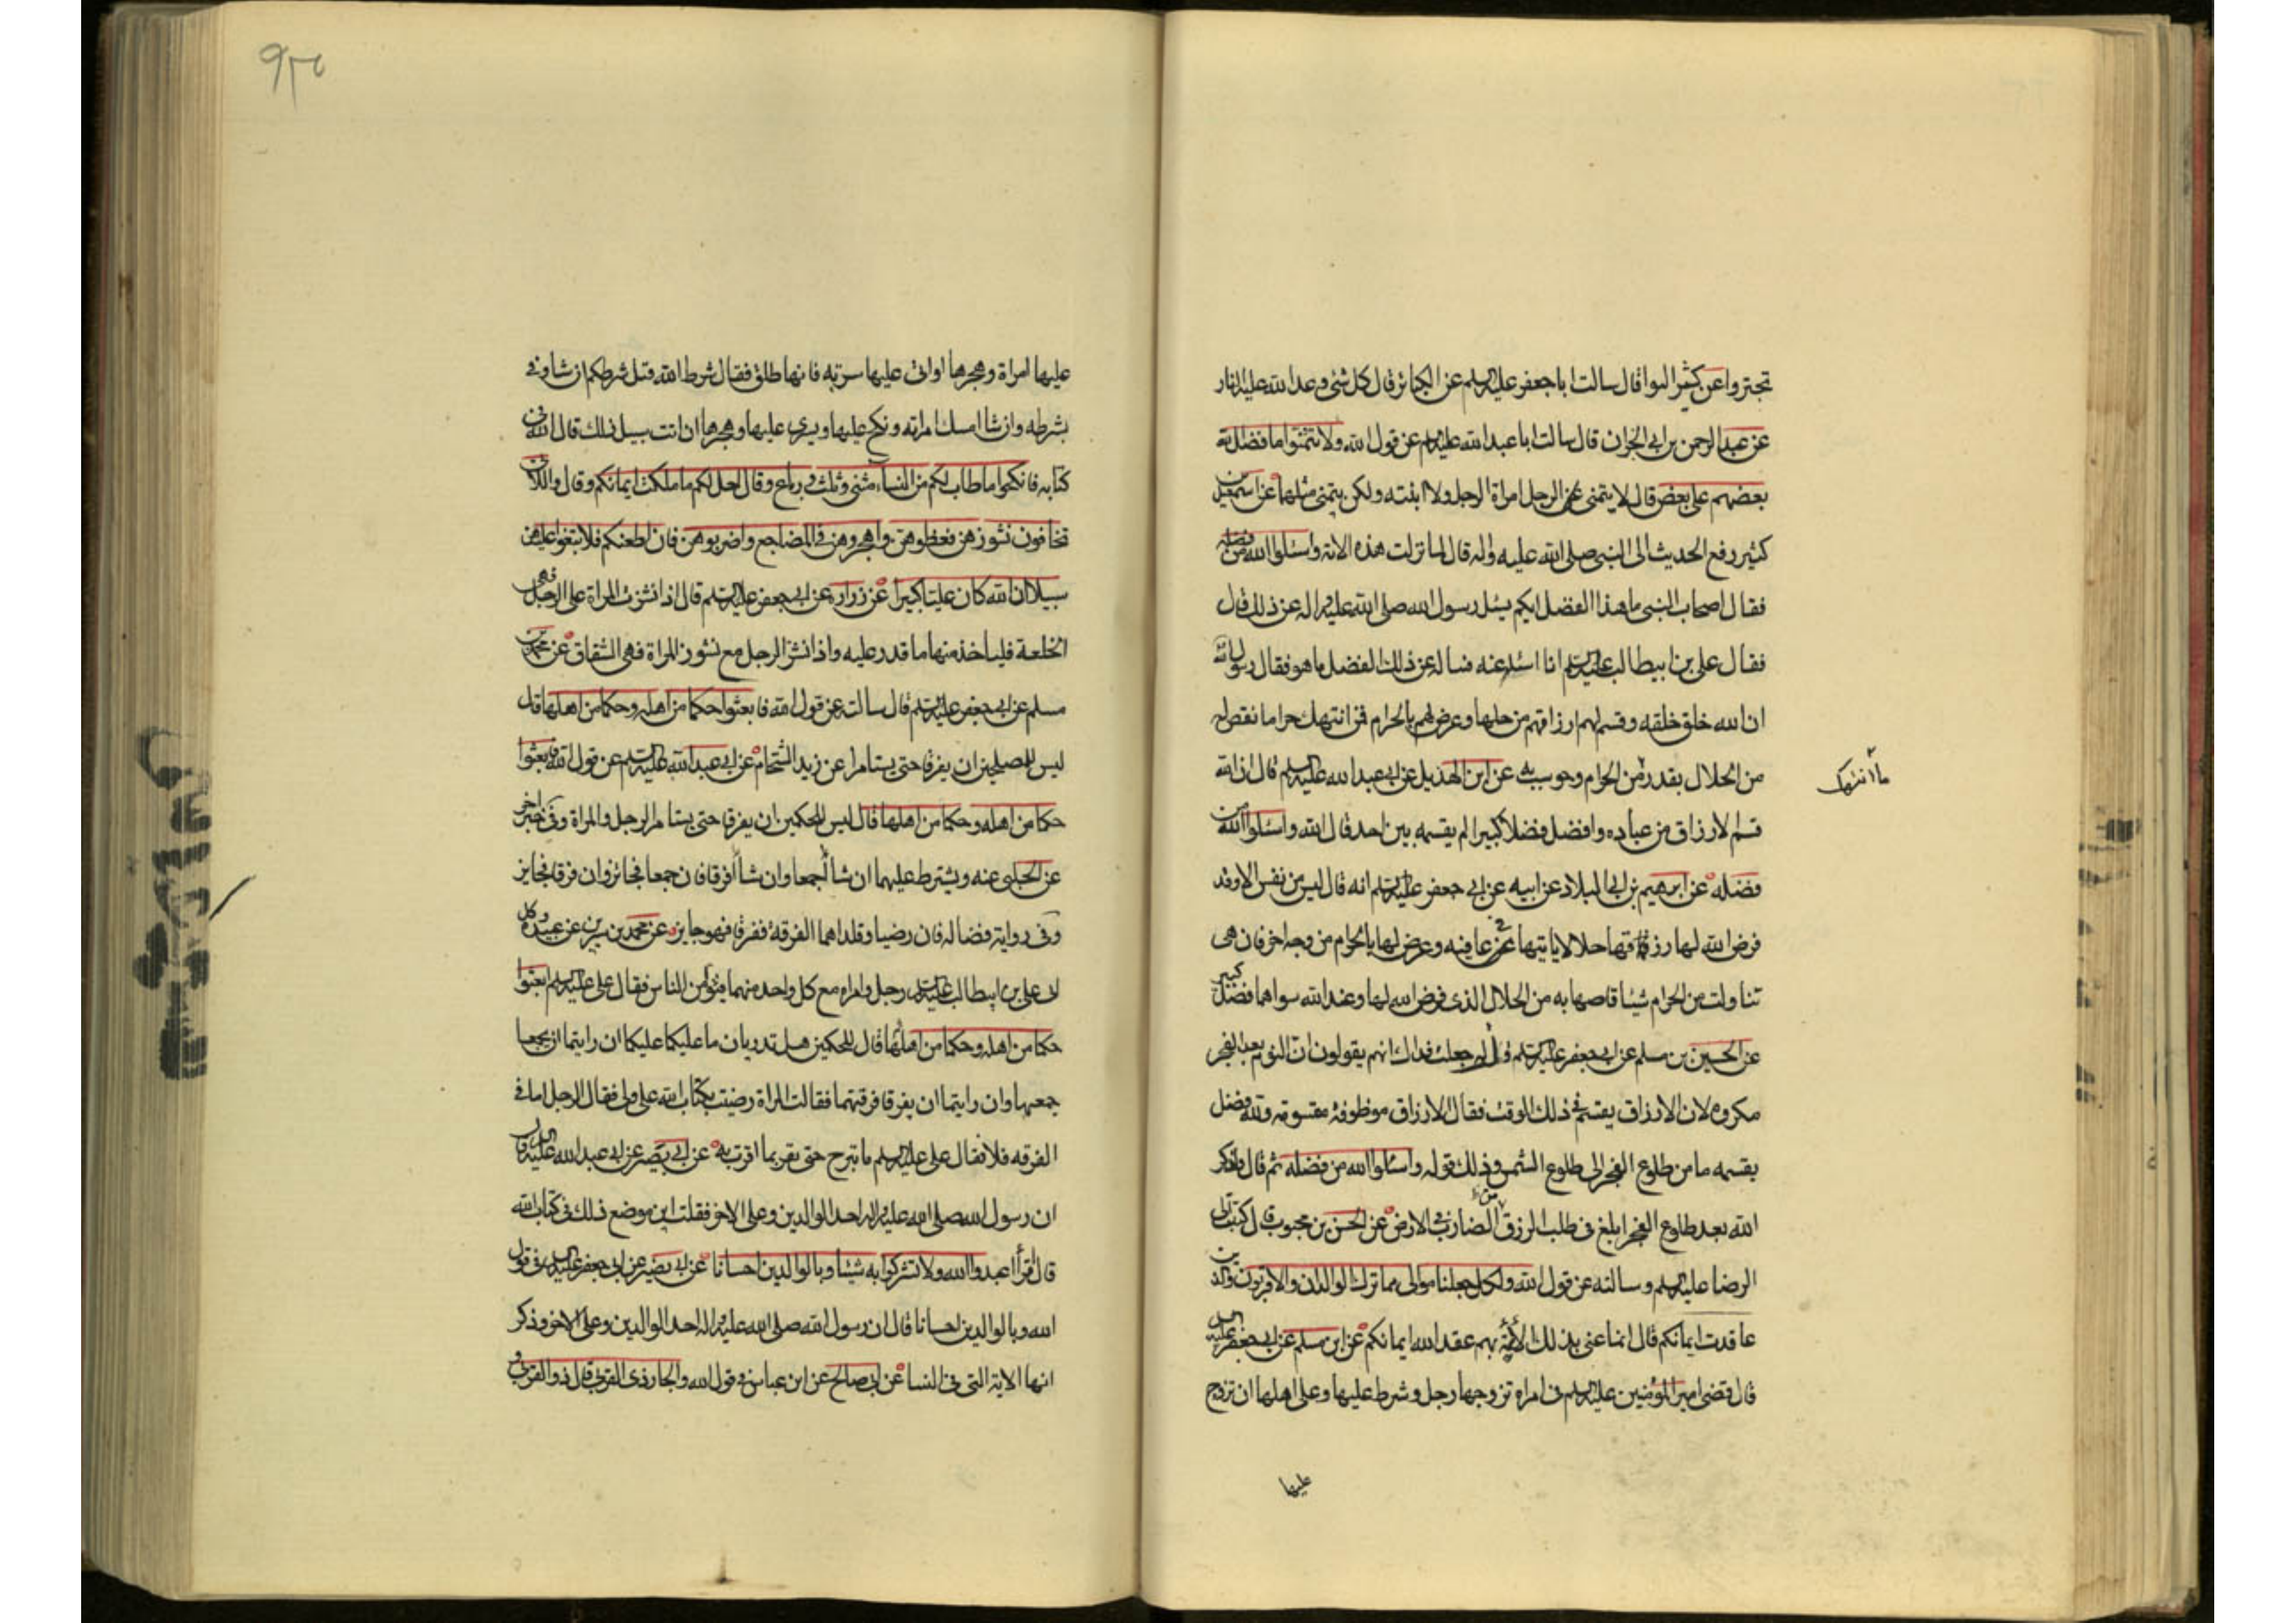 تجتروا عن كثير النوا قال سالت ابا جعفر عليه السلم عن الكبائر قال كل شئ وعد الله عليه النار
عن عبد الرحمن بن ابي نجران قال سالت ابا عبد الله عليه السلم عن قول الله ولا تتمنوا ما فضل الله
بعضهم على بعض قال لا يتمنى الرجل امراة الرجل ولا ابنته ولكن يتمنى مثلها عن اسمعيل بن
كثير رفع الحديث الى النبي صلى الله عليه واله قال لما نزلت هذه الاية واسئلوا الله من فضله
فقال اصحاب النبي ما هذا الفضل ايكم يسئل رسول الله صلى الله عليه واله عن ذلك قال
فقال على بن ابيطالب عليه السلم انا اسئله عنه فساله عن ذلك الفضل ما هو فقال رسول الله
ان الله خلق خلقه وقسم لهم ارزاقهم من حلها وعرض لهم بالحرام فمن انتهك حراما نقص له
من الحلال بقدر من الحرام وحوسب به عن ابن الهذيل عن ابي عبد الله عليه السلم قال ان الله
ما انتهك
قسم الارزاق بين عباده وافضل فضلا كبيرا لم يقسمه بين احد قال الله واسئلوا الله من
فضله عن ابرهيم بن ابي البلاد عن ابيه عن ابي جعفر عليه السلم انه قال ليس من نفس الا وقد
فرض الله لها رزقها حلالا ياتيها في عافيه وعرض لها بالحرام من وجه اخر فان هى
تناولت من الحرام شيئا قاصها به من الحلال الذى فرض الله لها وعند الله سواهما فضل كبير
عن الحسين بن مسلم عن ابي جعفر عليه السلم قال له جعلت فداك انهم يقولون ان النوم بعد الفجر
مكروه لان الارزاق يقسم في ذلك الوقت فقال الارزاق موظوفة مقسومه ولله فضل
يقسمه ما من طلوع الفجر الى طلوع الشمس وذلك قوله واسئلوا الله من فضله ثم قال وذكر
الله بعد طلوع الفجر ابلغ فى طلب الرزق من الضارب في الارض عن الحسن بن محبوب قال كتبت الى
الرضا عليه السلم وسالته عن قول الله ولكل جعلنا موالى مما ترك الوالدان والاقربون والذين
عاقدت ايمانكم قال انما عنى بذلك الأئمة بهم عقد الله ايمانكم عن ابن مسلم عن ابي جعفر عليه السلم
قال قضى امير المؤمنين عليه السلم فى امراه تزوجها رجل وشرط عليها وعلى اهلها ان تزوج
عليها
عليها امراة وهجرها او اتى عليها سرية فانها طالق فقال شرط الله قبل شرطكم ان شاء وفى
بشرطه وان شا امسك امراته ونكح عليها وتسرى عليها وهجرها ان اتت بسبيل ذلك قال الله فى
كتابه فانكحوا ما طاب لكم من النساء مثنى وثلث ورباع وقال احل لكم ما ملكت ايمانكم وقال واللاتى
تخافون نشوزهن فعظوهن واهجروهن فى المضاجع واضربوهن فان اطعنكم فلا تبغوا عليهن
سبيلا ان الله كان عليا كبيرا عن زراره عن ابي جعفر عليه السلم قال اذا نشزت المراة على الرجل فهى
الخلعة فلياخذ منها ما قدر عليه واذا نشز الرجل مع نشوز المراة فهى الشقاق عن محمد بن
مسلم عن ابي جعفر عليه السلم قال سالته عن قول الله فابعثوا حكما من اهله وحكما من اهلها قال
ليس للمصلحين ان يفرقا حتى يستامرا عن زيد الشحام عن ابي عبد الله عليه السلم عن قول الله فابعثوا
حكما من اهله وحكما من اهلها قال ليس للحكمين ان يفرقا حتى يستامرا الرجل والمراة وفى خبر اخر
عن الحلبى عنه ويشترط عليهما ان شاا جمعا وان شاا فرقا فان جمعا فجائز وان فرقا فجايز
وفى رواية فضاله فان رضيا وقلداهما الفرقة ففرقا فهو جايز عن محمد بن سيرين عن عبيدة قال
اتى على بن ابيطالب عليه السلم رجل وامراه مع كل واحد منهما فئام من الناس فقال على عليه السلم ابعثوا
حكما من اهله وحكما من اهلها قال للحكمين هل تدريان ما عليكما عليكما ان رايتما ان يجمعا
جمعهما وان رايتما ان يفرقا فرقتهما فقالت المراة رضيت بكتاب الله على ولى فقال الرجل اما فى
الفرقه فلا فقال على عليه السلم ما تبرح حتى تقر بما اقرت به عن ابي بصير عن ابي عبد الله عليه السلم قال
ان رسول الله صلى الله عليه واله احد الوالدين وعلى الاخر فقلت اين موضع ذلك فى كتاب الله
قال اقرأ اعبدوا الله ولا تشركوا به شيئا وبالوالدين احسانا عن ابي بصير عن ابي جعفر عليه السلم فى قول
الله وبالوالدين احسانا قال ان رسول الله صلى الله عليه واله احد الوالدين وعلى الاخر وذكر
انها الاية التى فى النسا عن ابي صالح عن ابن عباس فى قول الله والجار ذى القربى قال ذو القربى و